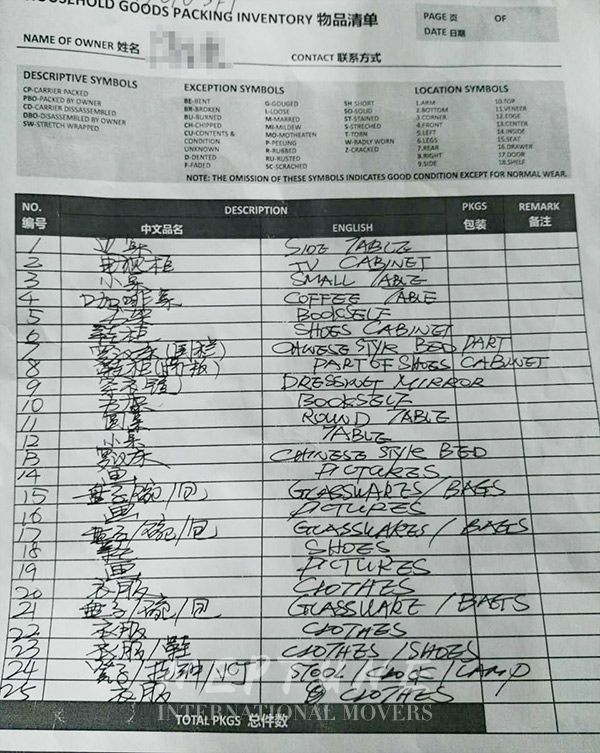 HOUSEHOLD GOODS PACKING INVENTORY 物品清单
PAGE 页 OF
DATE 日期
NAME OF OWNER 姓名
CONTACT 联系方式
DESCRIPTIVE SYMBOLS
CP-CARRIER PACKED
PBO-PACKED BY OWNER
CD-CARRIER DISSASSEMBLED
DBO-DISASSEMBLED BY OWNER
SW-STRETCH WRAPPED
EXCEPTION SYMBOLS
BE-BENT
BR-BROKEN
BU-BURNED
CH-CHIPPED
CU-CONTENTS &
CONDITION
UNKNOWN
D-DENTED
F-FADED
G-GOUGED
L-LOOSE
M-MARRED
MI-MILDEW
MO-MOTHEATEN
P-PEELING
R-RUBBED
RU-RUSTED
SC-SCRACHED
SH SHORT
SO-SOLID
ST-STAINED
S-STRECHED
T-TORN
W-BADLY WORN
Z-CRACKED
LOCATION SYMBOLS
1.ARM
2.BOTTOM
3.CORNER
4.FRONT
5.LEFT
6.LEGS
7.REAR
8.RIGHT
9.SIDE
10.TOP
11.VENEER
12.EDGE
13.CENTER
14.INSIDE
15.SEAT
16.DRAWER
17.DOOR
18.SHELF
NOTE: THE OMISSION OF THESE SYMBOLS INDICATES GOOD CONDITION EXCEPT FOR NORMAL WEAR.
NO. 编号 DESCRIPTION 中文品名 ENGLISH PKGS 包装 REMARK 备注
1 边桌 SIDE TABLE
2 电视柜 TV CABINET
3 小桌 SMALL TABLE
4 咖啡桌 COFFEE TABLE
5 书架 BOOKSELF
6 鞋柜 SHOES CABINET
7 罗汉床(围栏) CHINESE STYLE BED PART
8 鞋柜(隔板) PART OF SHOES CABINET
9 DRESSING MIRROR
10 书架 BOOKSELF
11 圆桌 ROUND TABLE
12 小桌 TABLE
13 罗汉床 CHINESE STYLE BED
14 画 PICTURES
15 盘子/碗/包 GLASSWARES/BAGS
16 画 PICTURES
17 盘子/碗/包 GLASSWARES/BAGS
18 鞋 SHOES
19 画 PICTURES
20 衣服 CLOTHES
21 盘子/碗/包 GLASSWARE/BAGS
22 衣服 CLOTHES
23 衣服/鞋 CLOTHES/SHOES
24 STOOL CLOCK/LAMP
25 衣服 CLOTHES
NEPTUNE
INTERNATIONAL MOVERS
TOTAL PKGS 总件数